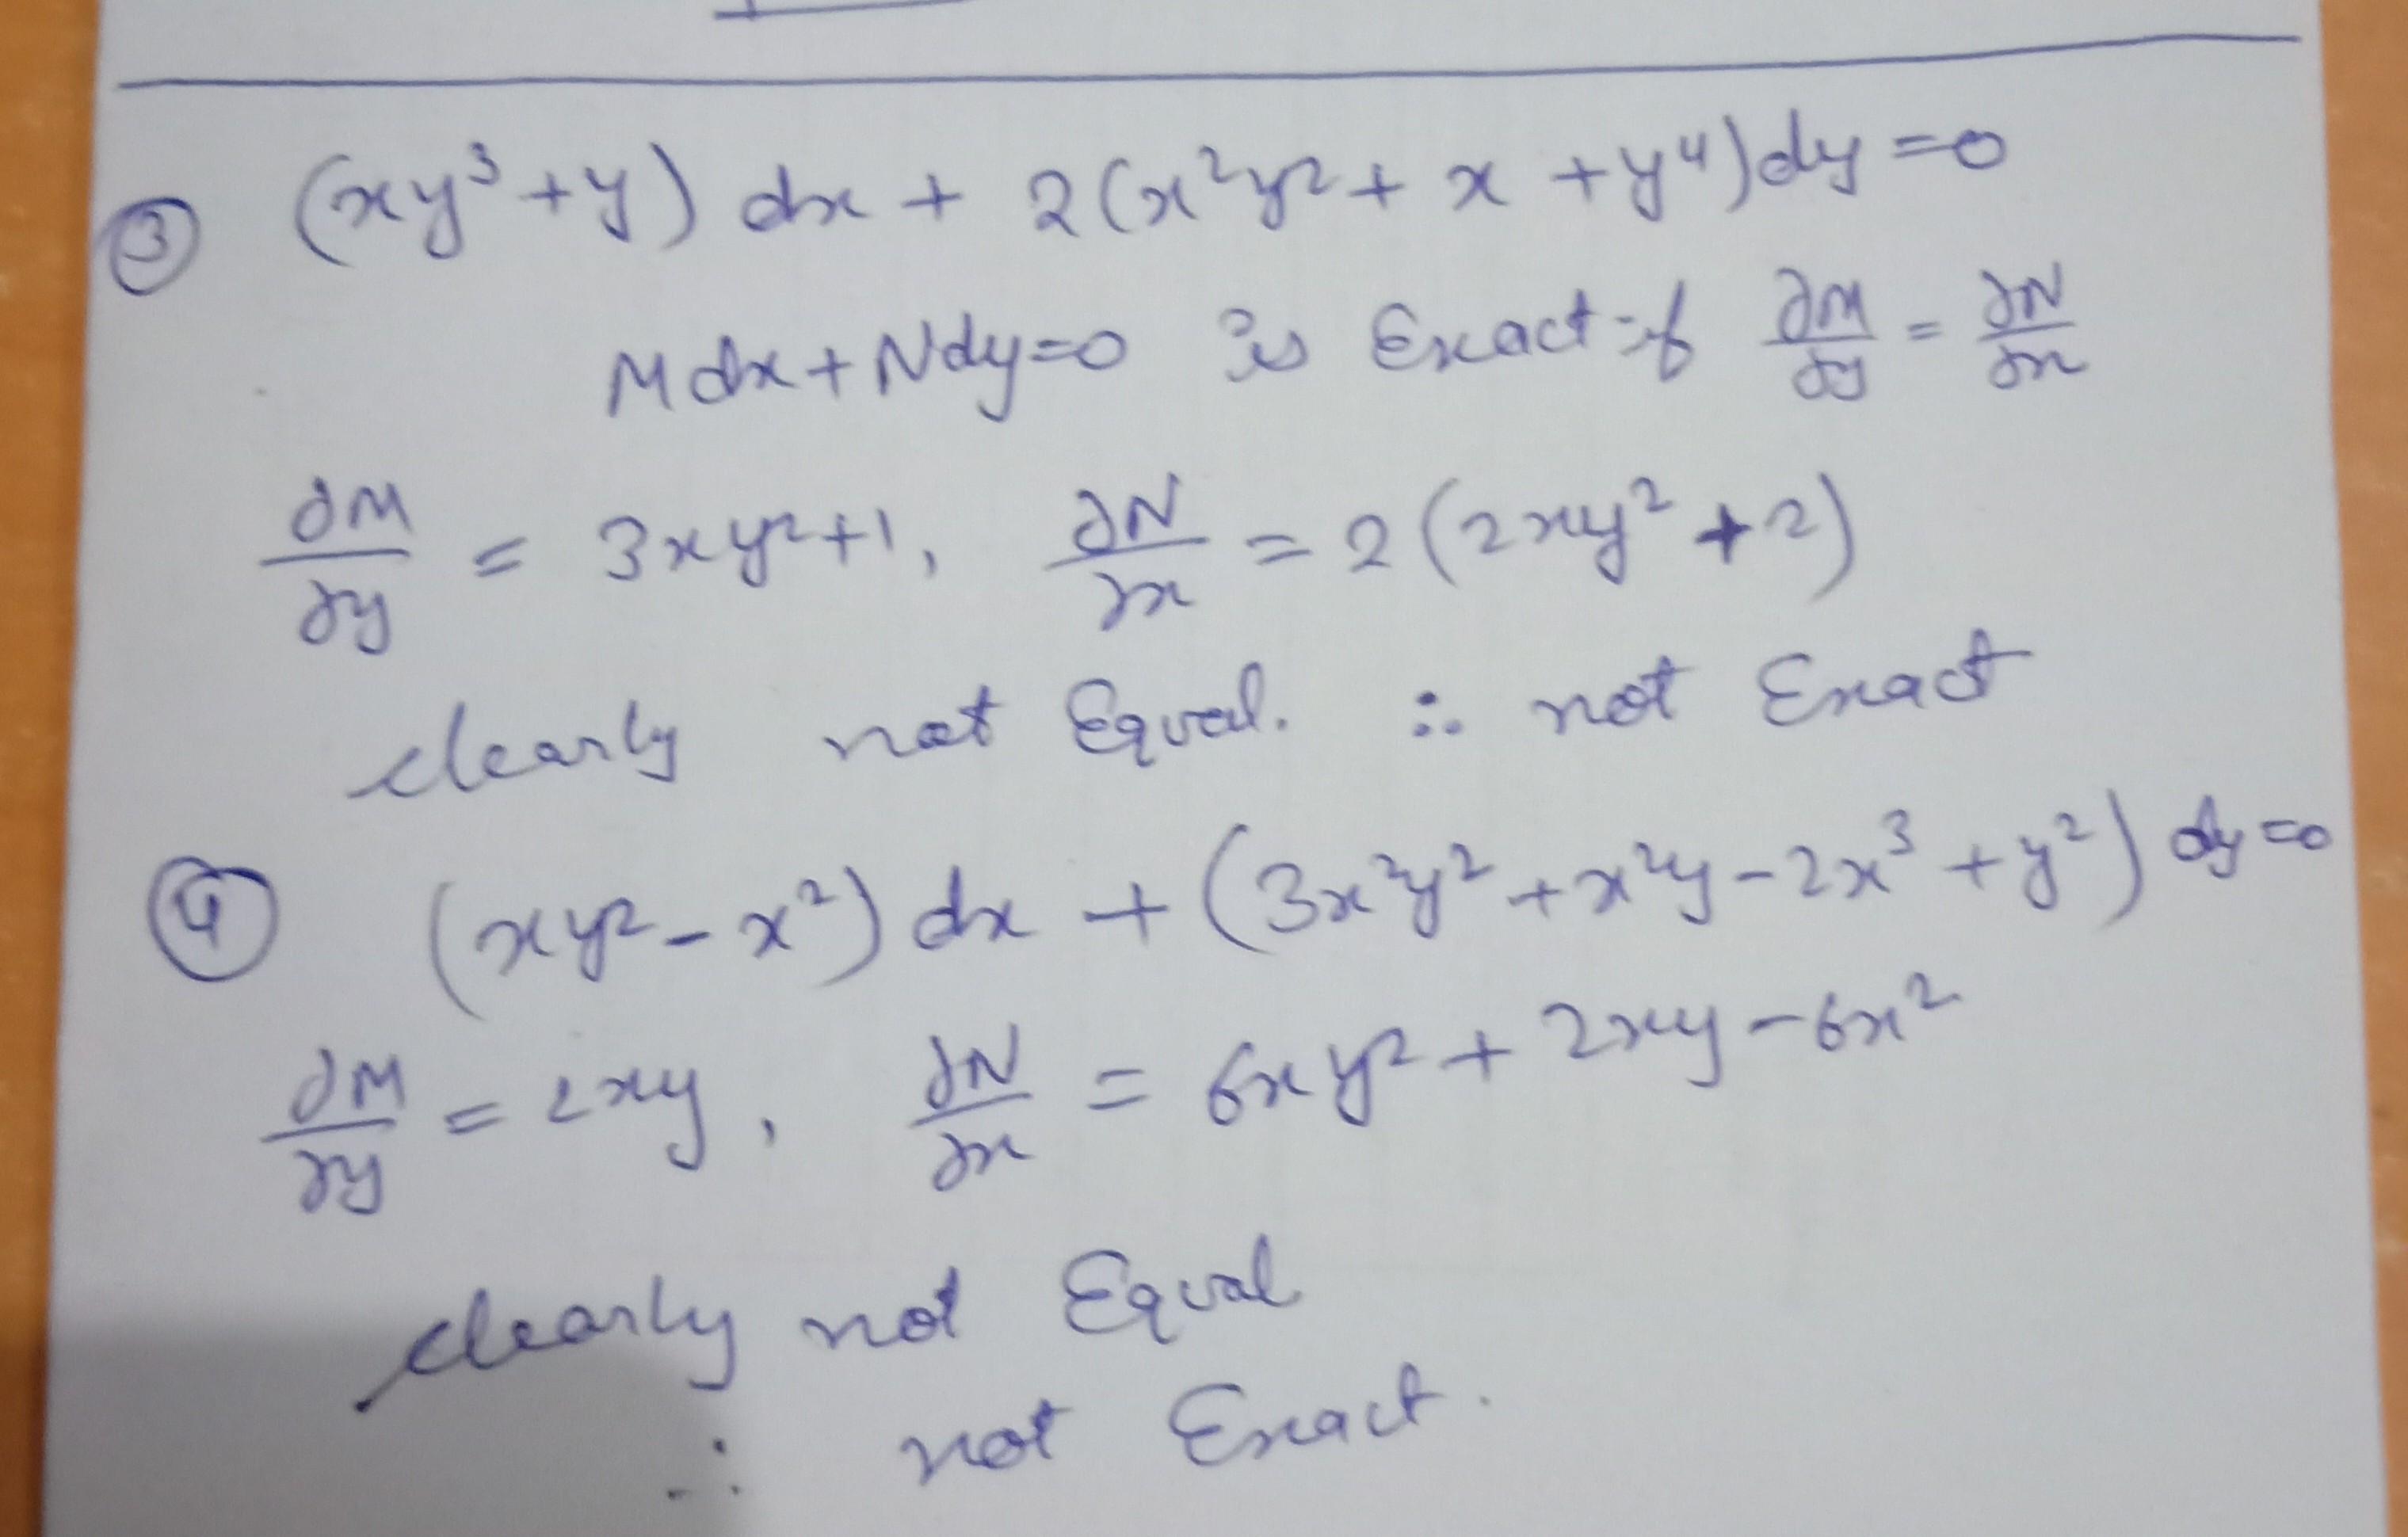 ③ (xy³+y) dx + 2(x²y² + x + y⁴)dy = 0
Mdx + Ndy = 0 is Exact if ∂M/∂y = ∂N/∂x
∂M/∂y = 3xy²+1, ∂N/∂x = 2(2xy² + 2)
clearly not Equal. ∴ not Exact
④ (xy² - x²) dx + (3x²y² + x²y - 2x³ + y²) dy = 0
∂M/∂y = 2xy, ∂N/∂x = 6xy² + 2xy - 6x²
clearly not Equal
∴ not Exact.